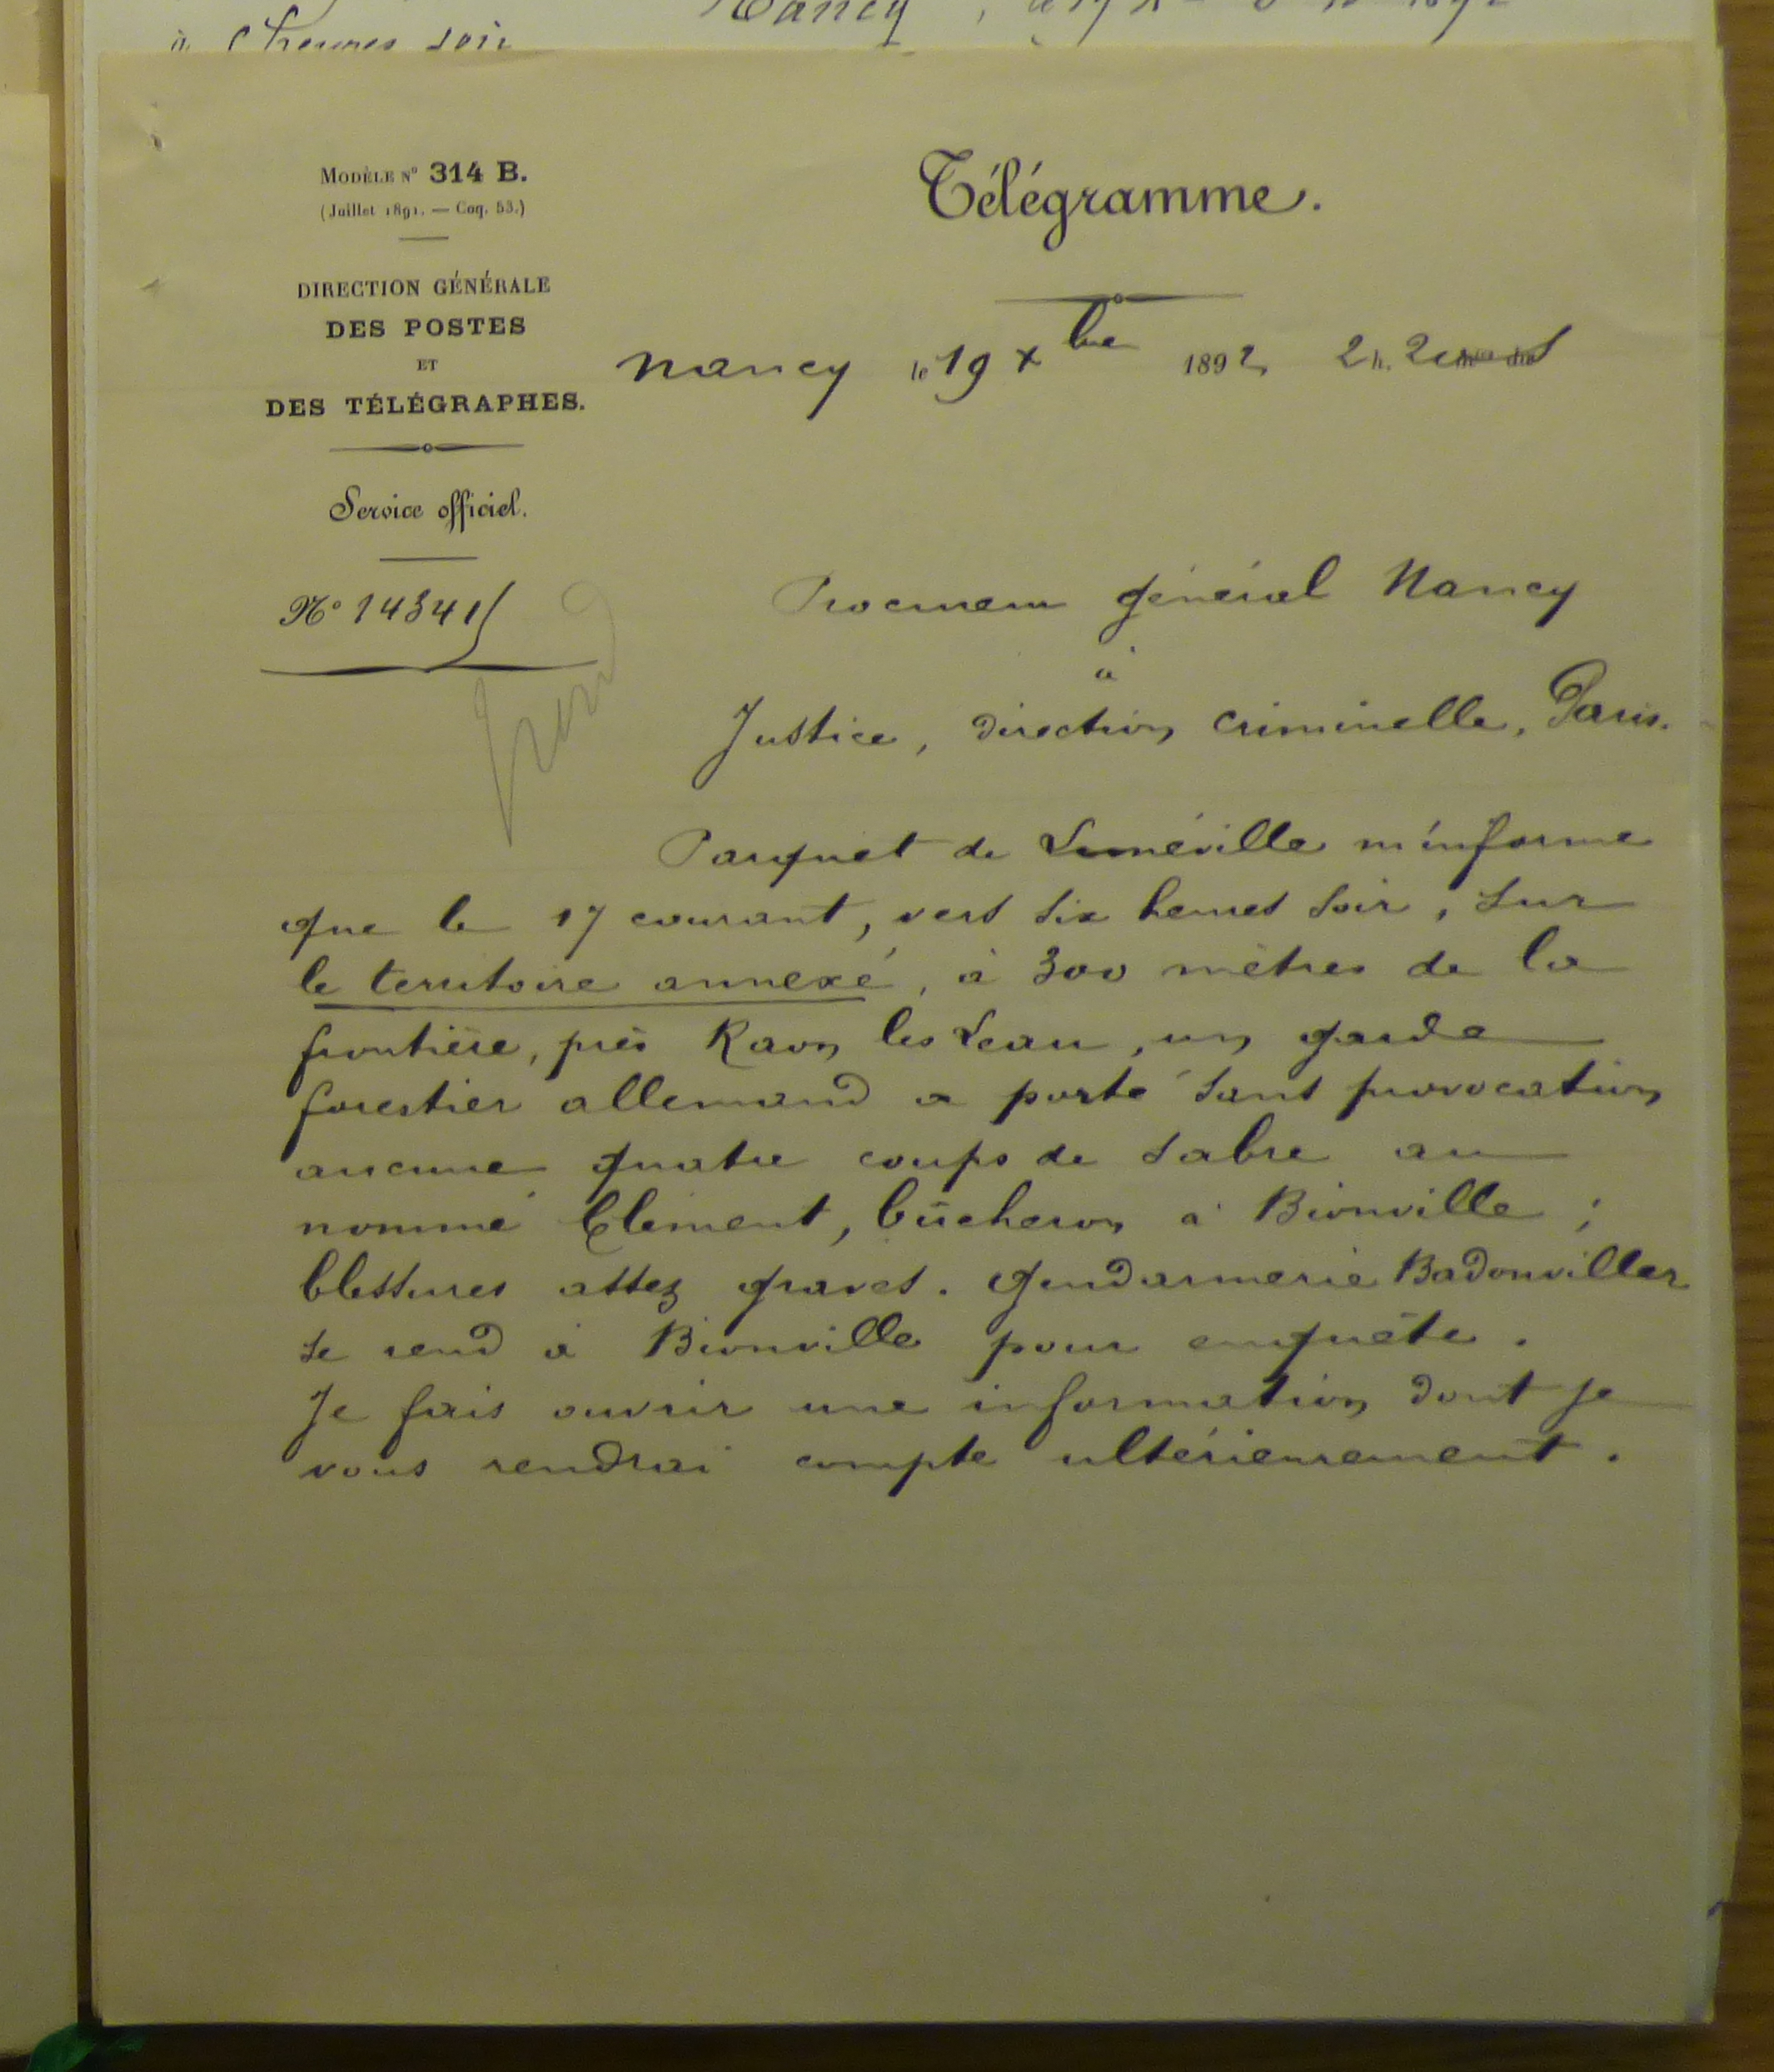 à heures soir
Nancy
MODÈLE N° 314 B.
(Juillet 1891. — Coq. 53.)
DIRECTION GÉNÉRALE
DES POSTES
ET
DES TÉLÉGRAPHES.
Service officiel.
N° 14341
Télégramme.
Nancy le 19 Xbre 1892, 2 h.
Procureur général Nancy
à
Justice, direction criminelle, Paris.
Parquet de Lunéville m'informe
que le 17 courant, vers six heures soir, sur
le territoire annexé, à 300 mètres de la
frontière, près Raon les Leau, un garde
forestier allemand a porté sans provocation
aucune quatre coups de sabre au
nommé Clément, bûcheron à Bionville ;
blessures assez graves. Gendarmerie Badonviller
se rend à Bionville pour enquête.
Je fais ouvrir une information dont je
vous rendrai compte ultérieurement.